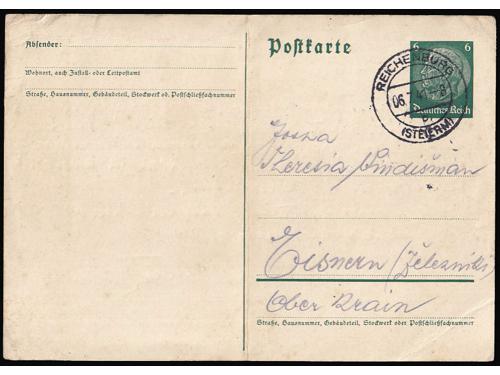 Absender:
Wohnort, auch Zustell- oder Leitpostamt
Straße, Hausnummer, Gebäudeteil, Stockwerk od. Postschließfachnummer
Postkarte
6 6
Deutsches Reich
REICHENBURG
06.
(STEIERM)
Theresia
Eisnern (Železniki)
Ober Krain
Straße, Hausnummer, Gebäudeteil, Stockwerk oder Postschließfachnummer